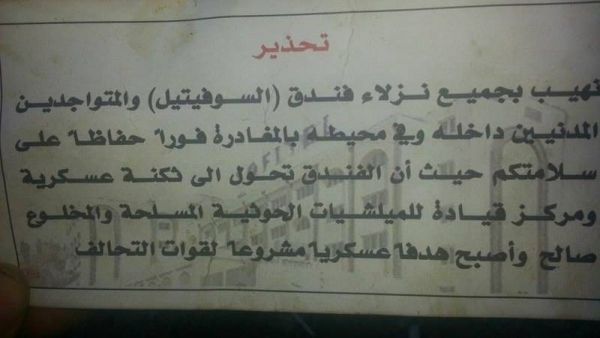 تحذير
نهيب بجميع نزلاء فندق (السوفيتيل) والمتواجدين
المدنيين داخله وفي محيطه بالمغادرة فوراً حفاظاً على
سلامتكم حيث أن الفندق تحول الى ثكنة عسكرية
ومركز قيادة للميلشيات الحوثية المسلحة والمخلوع
صالح وأصبح هدفاً عسكرياً مشروعاً لقوات التحالف